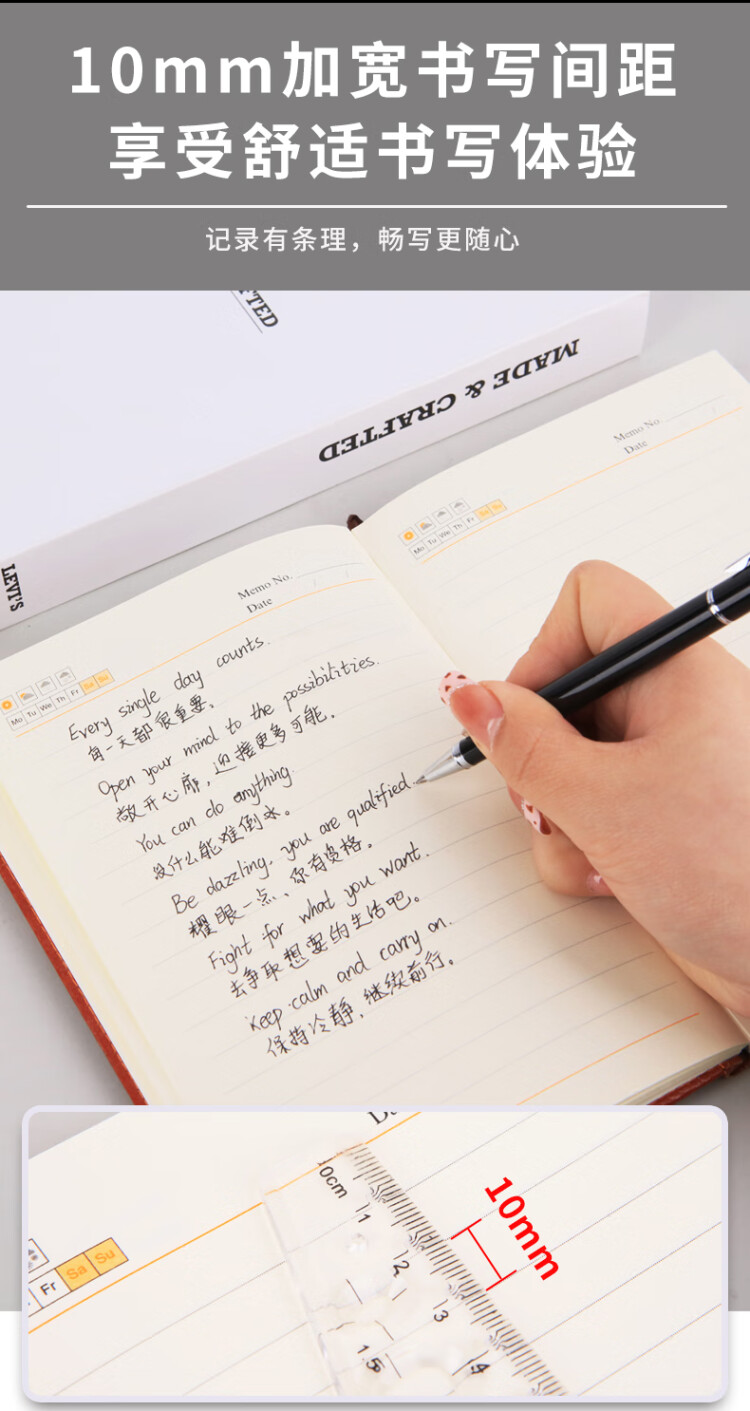 10mm加宽书写间距
享受舒适书写体验
记录有条理，畅写更随心
FTED
MADE & CRAFTED
LEVI'S
Memo No.
Date
Mo Tu We Th Fr Sa Su
Memo No.
Date
Mo Tu We Th Fr Sa Su
Every single day counts.
每一天都很重要。
Open your mind to the possibilities.
敞开心扉，迎接更多可能。
You can do anything
没什么能难倒你。
Be dazzling, you are qualified.
耀眼一点、你有资格。
Fight for what you want.
去争取想要的生活吧。
Keep calm and carry on.
保持冷静，继续前行。
Fr Sa Su
0cm 1 2 3 4
1.5
10mm